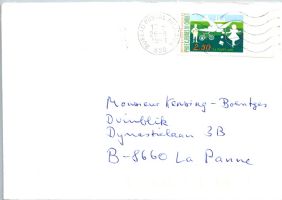 2.50
Monsieur Kensing-Boentges
Duinblik
Dynastielaan 3B
B-8660 La Panne